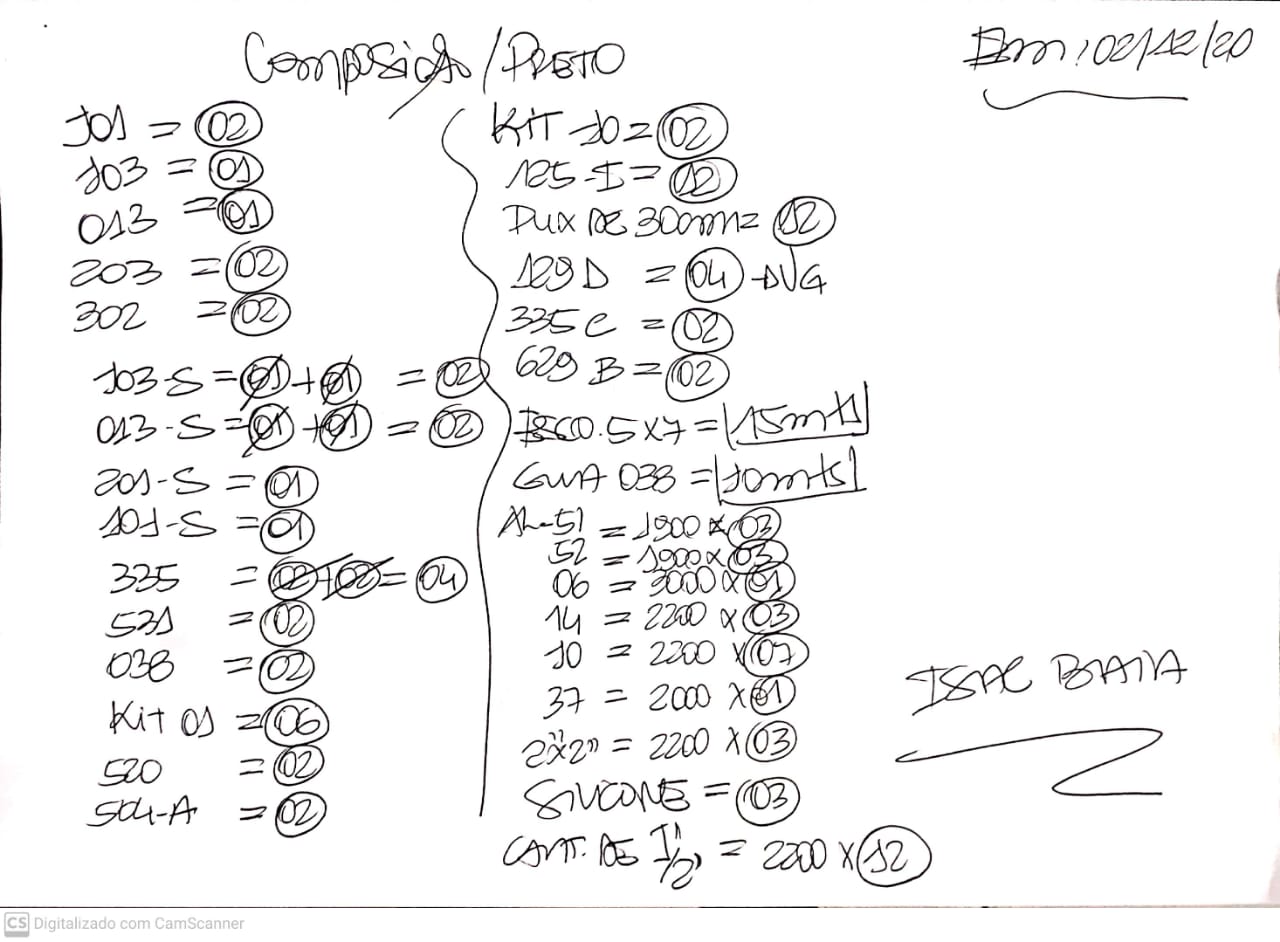 Composição / PRETO
Em: 02/12/20
101 = 02
103 = 01
013 = 01
203 = 02
302 = 02
103-S = 01 + 01 = 02
013-S = 01 + 01 = 02
201-S = 01
101-S = 01
335 = 02 + 02 = 04
531 = 02
038 = 02
Kit 01 = 06
520 = 02
504-A = 02
KIT 10 = 02
125-I = 12
PUX DE 300mm = 12
129 D = 04 - DVG
335 C = 02
629 B = 02
ESCO. 5x7 = 15mts
GUIA 038 = 10mts
AL-51 = 1900 x 03
52 = 1900 x 03
06 = 3000 x 01
14 = 2200 x 03
10 = 2200 x 07
37 = 2000 x 01
2"x2" = 2200 x 03
SILICONE = 03
CANT. DE 1"1/2 = 2200 x 12
ISAC BAIA
CS Digitalizado com CamScanner